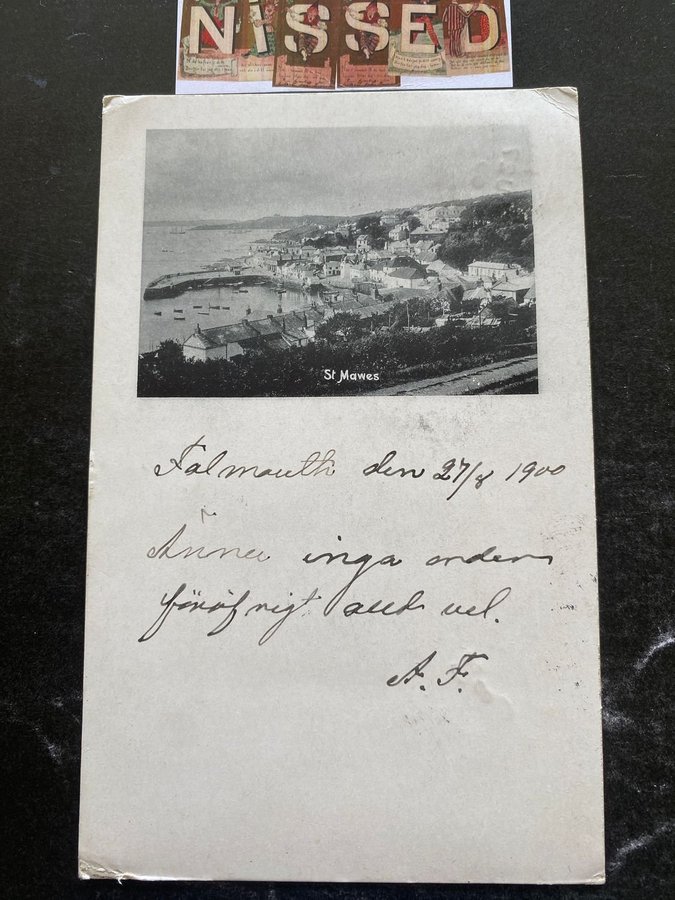 NISSED
St Mawes
Falmouth den 27/8 1900
Ännu inga orders
föröfrigt allt vel.
A. F.